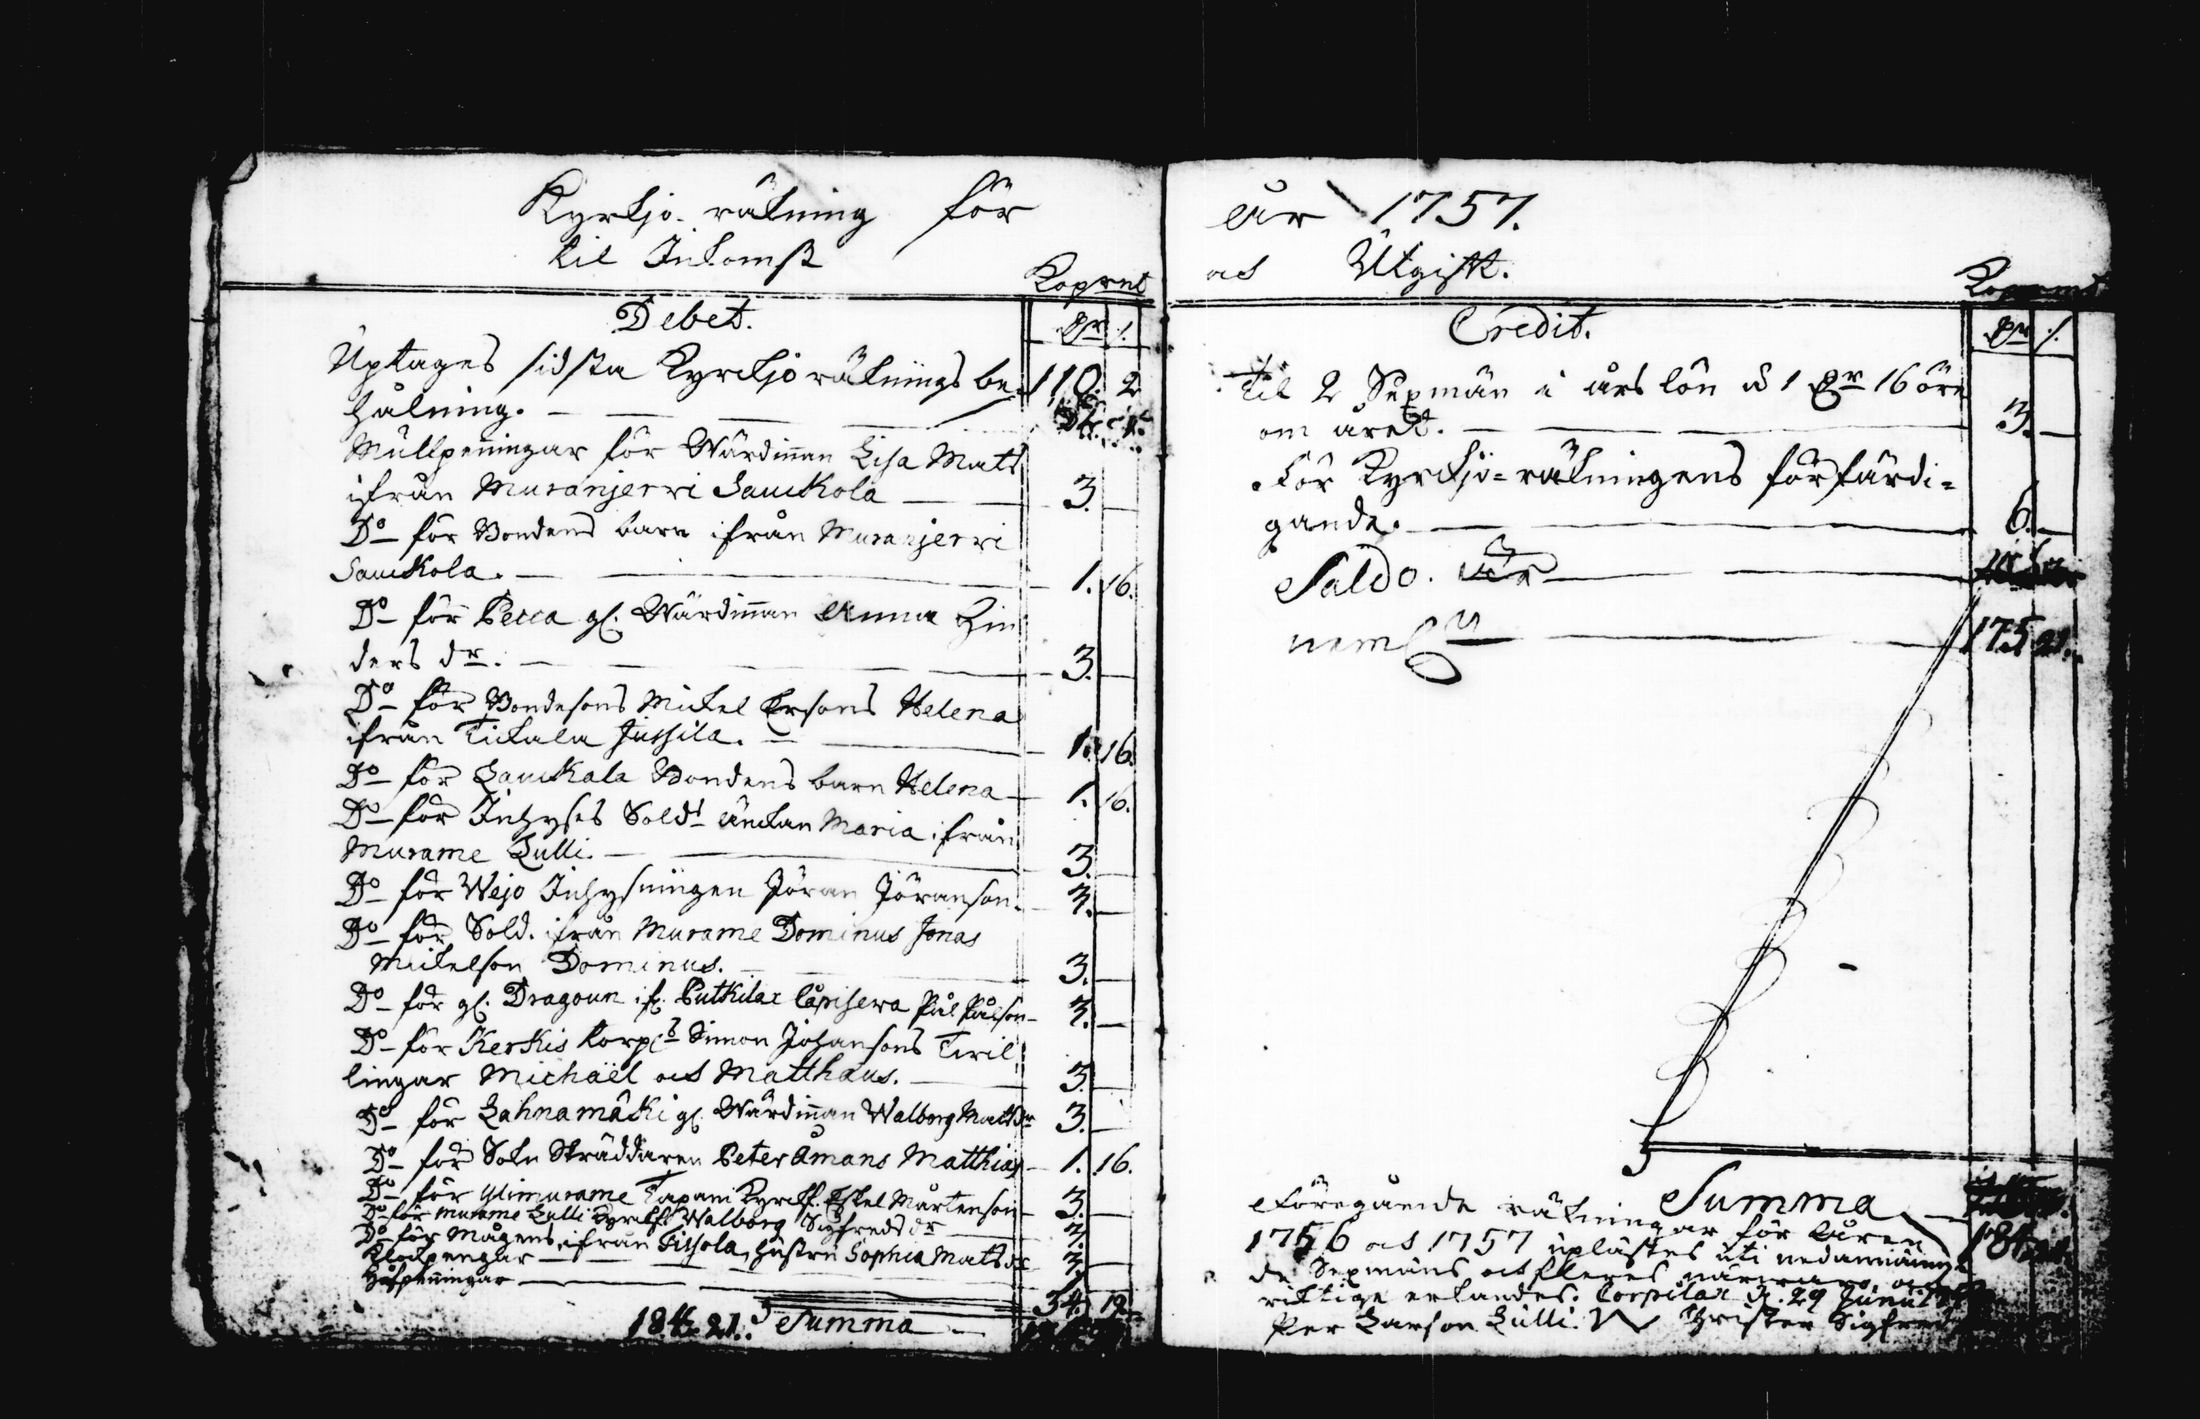 Kyrkjo-räkning för
til Inkomst
Koprmt
Debet.
Dr /.
Uptages sidsta Kyrckjoräknings be- 118. 2
hålning.
Mullpenningar för Wärdinnan Lisa Mats
ifrån Muranjerri Sauckola 3.
Do för Bondens barn ifrån Muranjerri
Sauckola. 1. 16.
Do för Pecca gl. Wärdinnan Anna Hin
ders dr. 3.
Do för Bondesons Mickel Ersons Helena
ifrån Tickala Jussila. 1. 16.
Do för Lauckala Bondens barn Helena 1. 16.
Do för Inhyses Soldt änckan Maria ifrån
Murame Lulli. 3.
Do för Wejo Inhysningen Jöran Jöranson. 3.
Do för Sold. ifrån Murame Dominus Jonas
Mickelson Dominus. 3.
Do för gl. Dragoun if. Putkilax Pål Pålson 3.
Do för Kerkis torps Simon Johansons Twil
lingar Michaël och Matthäus. 3.
Do för Lahnamäcki gl. Wärdinnan Walborg Matsdr 3.
Do för Sokn Skräddaren Peter Åmans Matthias 1. 16.
Do för Ylimurame Tapani Eskel Mårtenson 3.
Do för Murame Lulli Walborg Sigfredsdr 3.
Do för Mågens ifrån hustru Sophia Matsdr 3.
Klockpengar
Håfpenningar 34. 19
184 21. Summa
år 1757.
och Utgift.
Credit.
Dr /.
Til 2 Sexmän i års lön à 1 Dr 16 öre
om året. 3.
För Kyrckjo-räkningens förfärdi-
gande. 6.
Saldo.
175 21.
Summa
Föregående räkningar för åren
1756 och 1757 uplästes uti nedannämn-
de Sexmäns och fleres närwaro, och
riktige erkandes. Corpilax d. 29 Junii
Per Larson Lulli. Christer Sigfreds